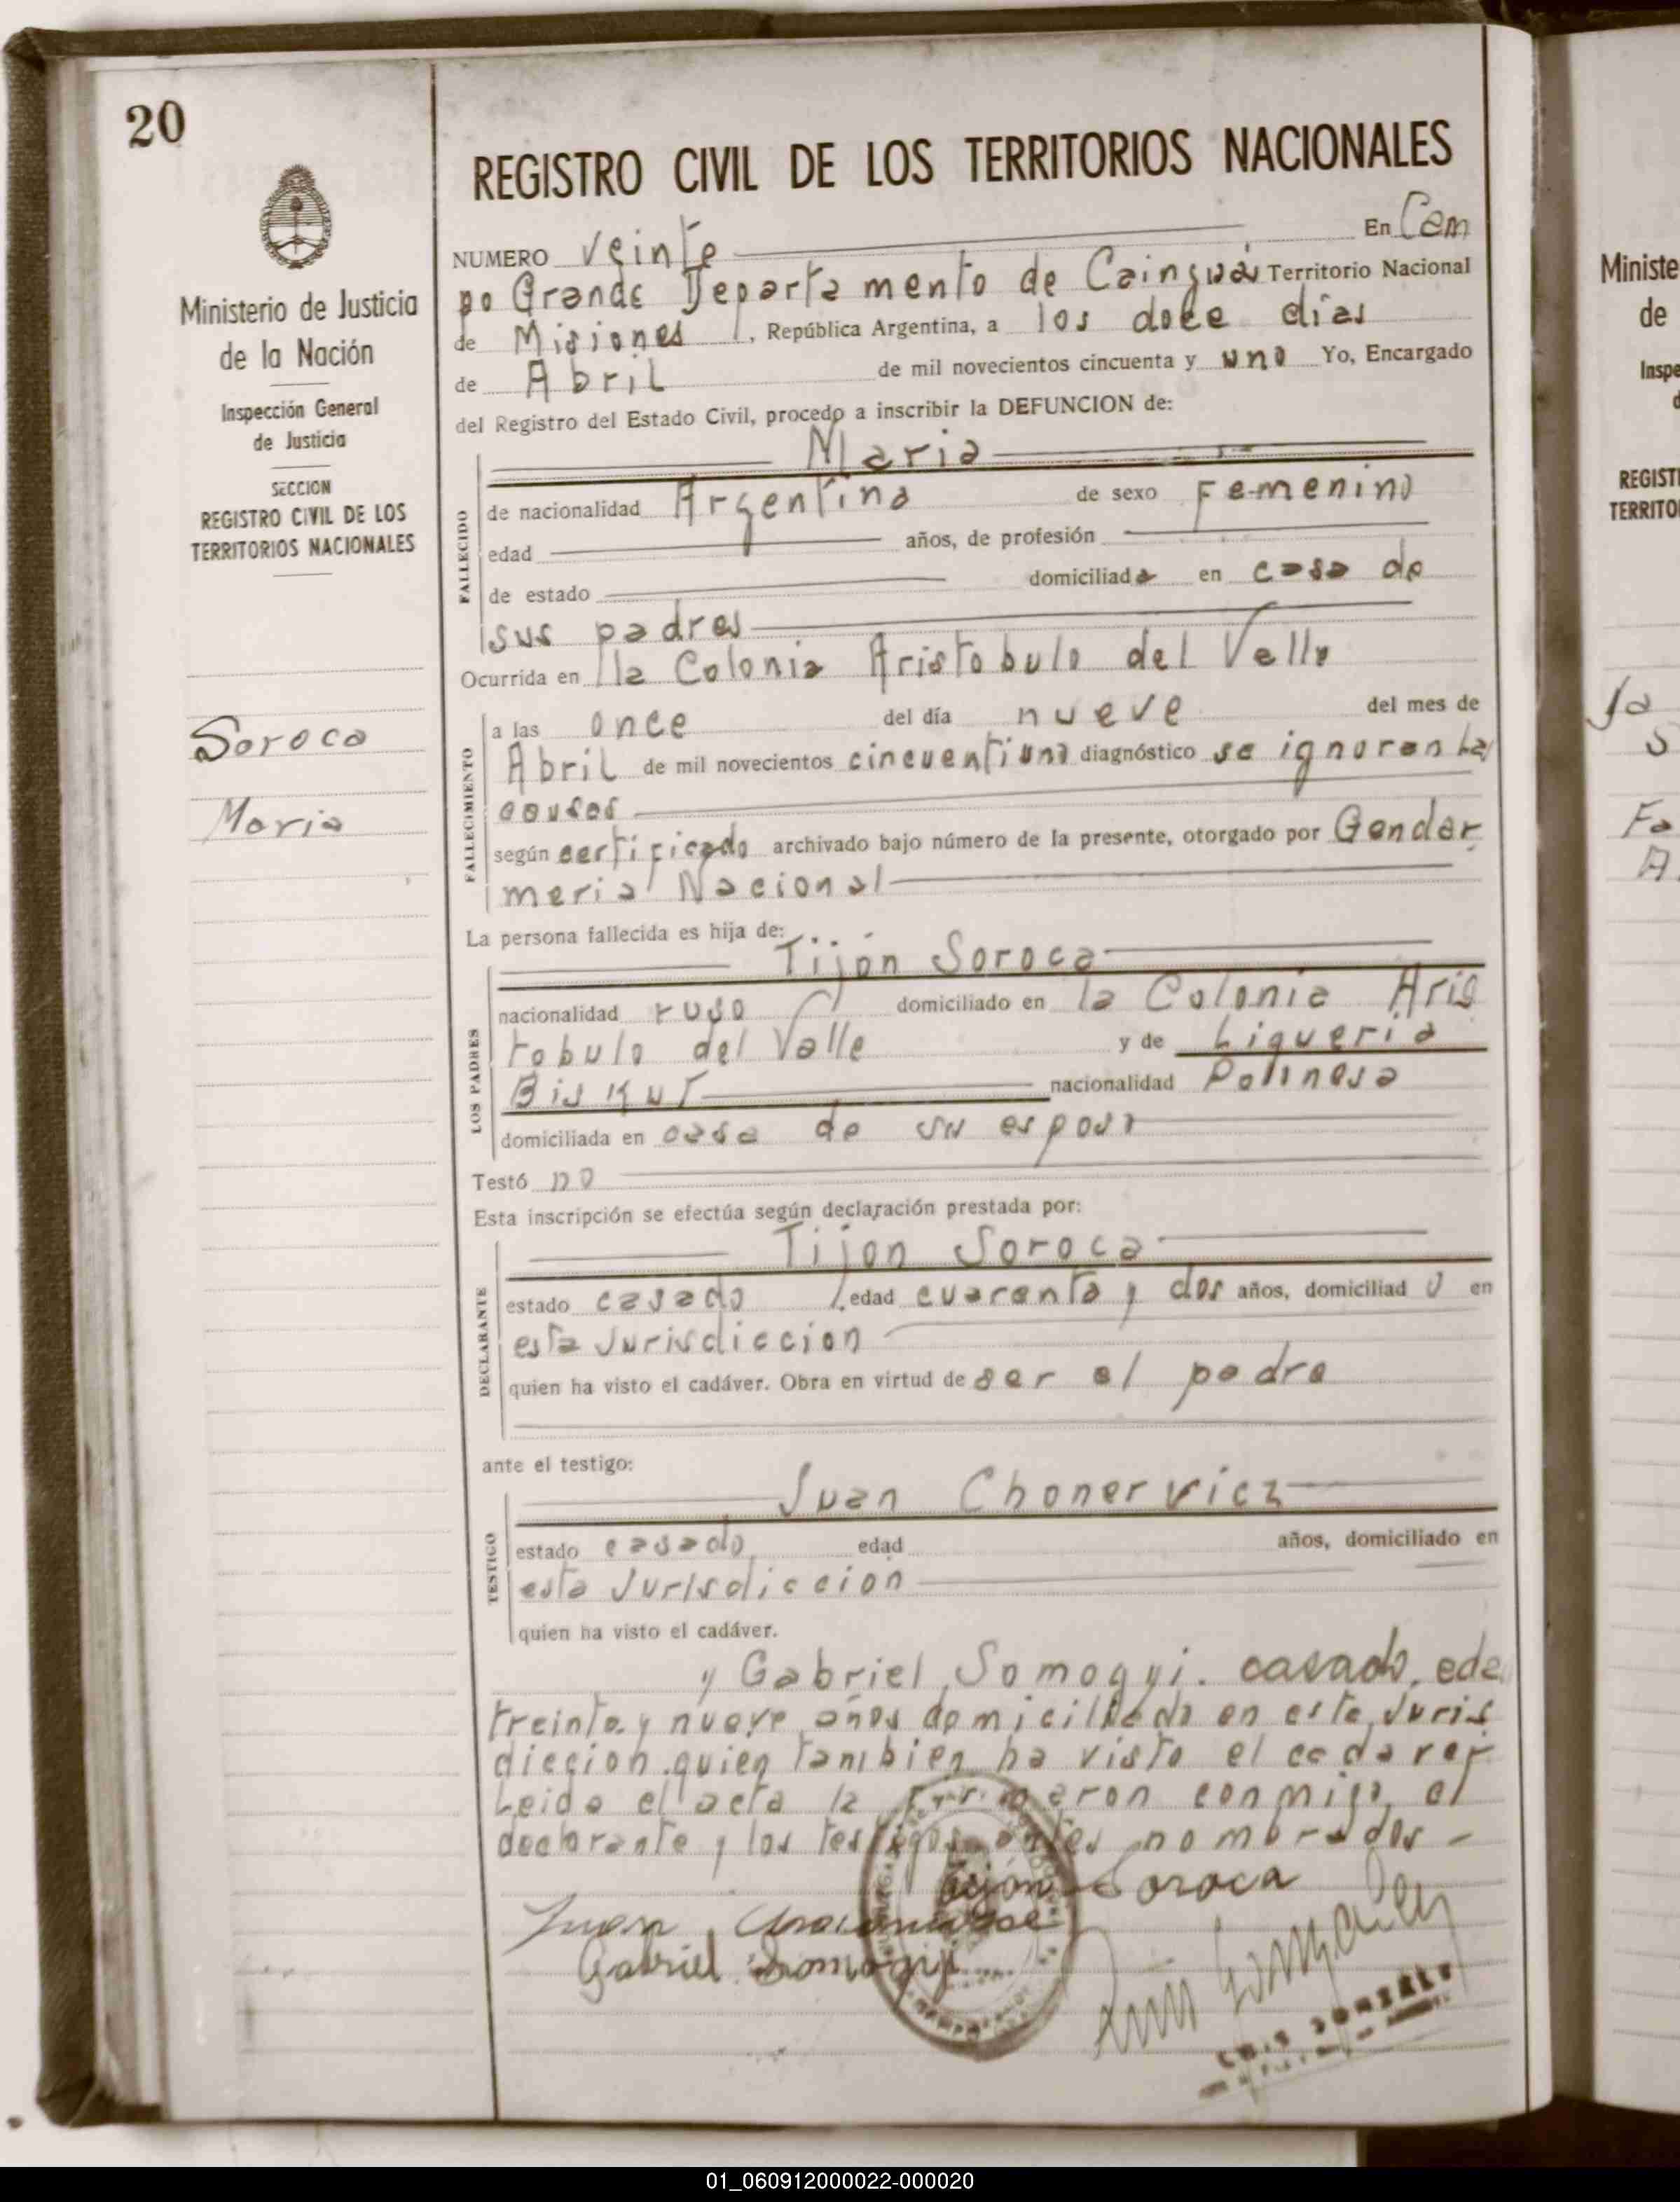 20
Ministerio de Justicia
de la Nación
Inspección General
de Justicia
SECCION
REGISTRO CIVIL DE LOS
TERRITORIOS NACIONALES
Soroca
Maria
REGISTRO CIVIL DE LOS TERRITORIOS NACIONALES
NUMERO veinte En Cam
po Grande Departamento de Cainguás Territorio Nacional
de Misiones, República Argentina, a los doce días
de Abril de mil novecientos cincuenta y uno Yo, Encargado
del Registro del Estado Civil, procedo a inscribir la DEFUNCION de:
Maria
FALLECIDO
de nacionalidad Argentina de sexo Femenino
edad años, de profesión
de estado domiciliada en casa de
sus padres
Ocurrida en la Colonia Aristobulo del Valle
FALLECIMIENTO
a las once del día nueve del mes de
Abril de mil novecientos cincuentiuno diagnóstico se ignoran las
causas
según certificado archivado bajo número de la presente, otorgado por Gendar
meria Nacional
La persona fallecida es hija de:
Tijón Soroca
LOS PADRES
nacionalidad ruso domiciliado en la Colonia Aris
tobulo del Valle y de Liqueria
Biskut nacionalidad Polinesa
domiciliada en casa de su esposo
Testó no
Esta inscripción se efectúa según declaración prestada por:
Tijon Soroca
DECLARANTE
estado casado edad cuarenta y dos años, domiciliado en
esta Jurisdiccion
quien ha visto el cadáver. Obra en virtud de ser el padre
ante el testigo:
Juan Chonervicz
TESTIGO
estado casado edad años, domiciliado en
esta Jurisdiccion
quien ha visto el cadáver.
y Gabriel Somogyi. casado, eda
treinta y nueve años domiciliado en esta Juris
diccion quien tambien ha visto el cadaver
Leida el acta la firmaron conmigo el
declarante y los testigos antes nombrados -
Tijon Soroca
Juan
Gabriel Somogyi
Luis Gonzalez
LUIS GONZALEZ
Ministe
de
Inspe
d
REGISTR
TERRITOR
Ja
S
Fa
A.
01_060912000022-000020